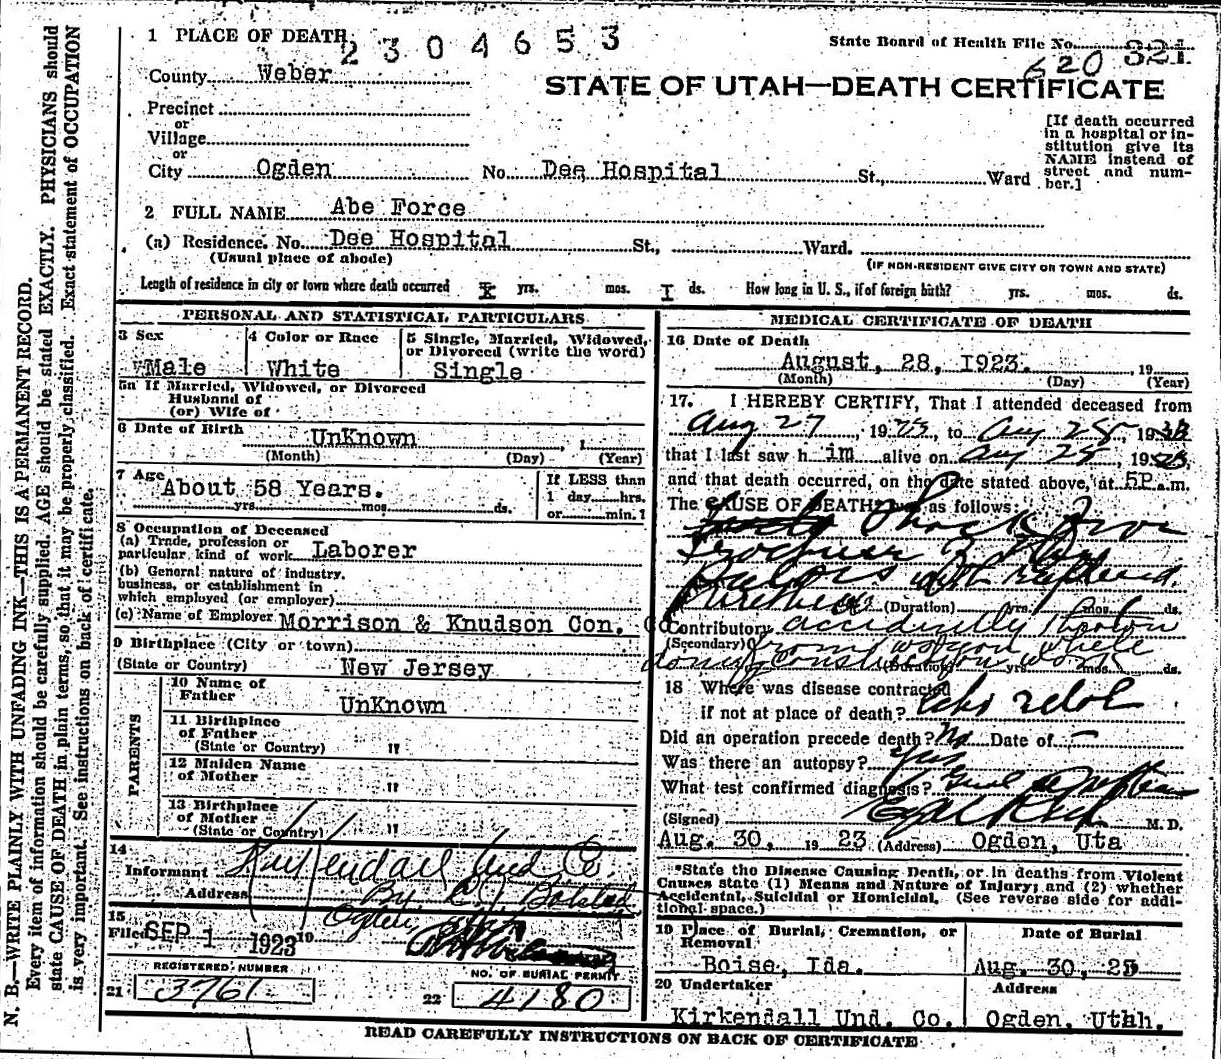 N. B.—WRITE PLAINLY WITH UNFADING INK—THIS IS A PERMANENT RECORD.
Every item of information should be carefully supplied. AGE should be stated EXACTLY. PHYSICIANS should
state CAUSE OF DEATH in plain terms, so that it may be properly classified. Exact statement of OCCUPATION
is very important. See instructions on back of certificate.
1 PLACE OF DEATH
2304653
State Board of Health File No. 321
620
County Weber
STATE OF UTAH—DEATH CERTIFICATE
Precinct
or
Village
or
City Ogden No. Dee Hospital St., Ward
[If death occurred
in a hospital or in-
stitution give its
NAME instead of
street and num-
ber.]
2 FULL NAME Abe Force
(a) Residence. No. Dee Hospital St., Ward.
(Usual place of abode)
(IF NON-RESIDENT GIVE CITY OR TOWN AND STATE)
Length of residence in city or town where death occurred yrs. mos. I ds. How long in U. S., if of foreign birth? yrs. mos. ds.
PERSONAL AND STATISTICAL PARTICULARS
3 Sex
Male
4 Color or Race
White
5 Single, Married, Widowed,
or Divorced (write the word)
Single
5a If Married, Widowed, or Divorced
Husband of
(or) Wife of
6 Date of Birth UnKnown , 1
(Month) (Day) (Year)
7 Age About 58 Years.
yrs. mos. ds.
If LESS than
1 day hrs.
or min.?
8 Occupation of Deceased
(a) Trade, profession or
particular kind of work Laborer
(b) General nature of industry,
business, or establishment in
which employed (or employer)
(c) Name of Employer Morrison & Knudson Con. Co
9 Birthplace (City or town)
(State or Country) New Jersey
PARENTS
10 Name of
Father UnKnown
11 Birthplace
of Father
(State or Country) "
12 Maiden Name
of Mother "
13 Birthplace
of Mother
(State or Country) "
14
Informant Kirkendall Und. Co.
Address By
Ogden, Utah
15
Filed SEP 1 1923 19
REGISTERED NUMBER
21 3761
NO. OF BURIAL PERMIT
22 4180
MEDICAL CERTIFICATE OF DEATH
16 Date of Death
August, 28, 1923. , 19
(Month) (Day) (Year)
17. I HEREBY CERTIFY, That I attended deceased from
Aug 27, 1923, to Aug 28, 1923
that I last saw h im alive on Aug 28, 1923
and that death occurred, on the date stated above, at 5P m.
The CAUSE OF DEATH was as follows:
Shock from
with ruptured
(Duration) yrs. mos. ds.
Contributory accidently thrown
(Secondary) from wagon while
doing construction work
(Duration) yrs. mos. ds.
18 Where was disease contracted
if not at place of death?
Did an operation precede death? No Date of —
Was there an autopsy? Yes
What test confirmed diagnosis?
(Signed) M. D.
Aug. 30, 19 23 (Address) Ogden, Uta
*State the Disease Causing Death, or in deaths from Violent
Causes state (1) Means and Nature of Injury; and (2) whether
Accidental, Suicidal or Homicidal. (See reverse side for addi-
tional space.)
19 Place of Burial, Cremation, or
Removal
Boise, Ida.
Date of Burial
Aug. 30, 23
20 Undertaker
Kirkendall Und. Co.
Address
Ogden, Utah.
READ CAREFULLY INSTRUCTIONS ON BACK OF CERTIFICATE